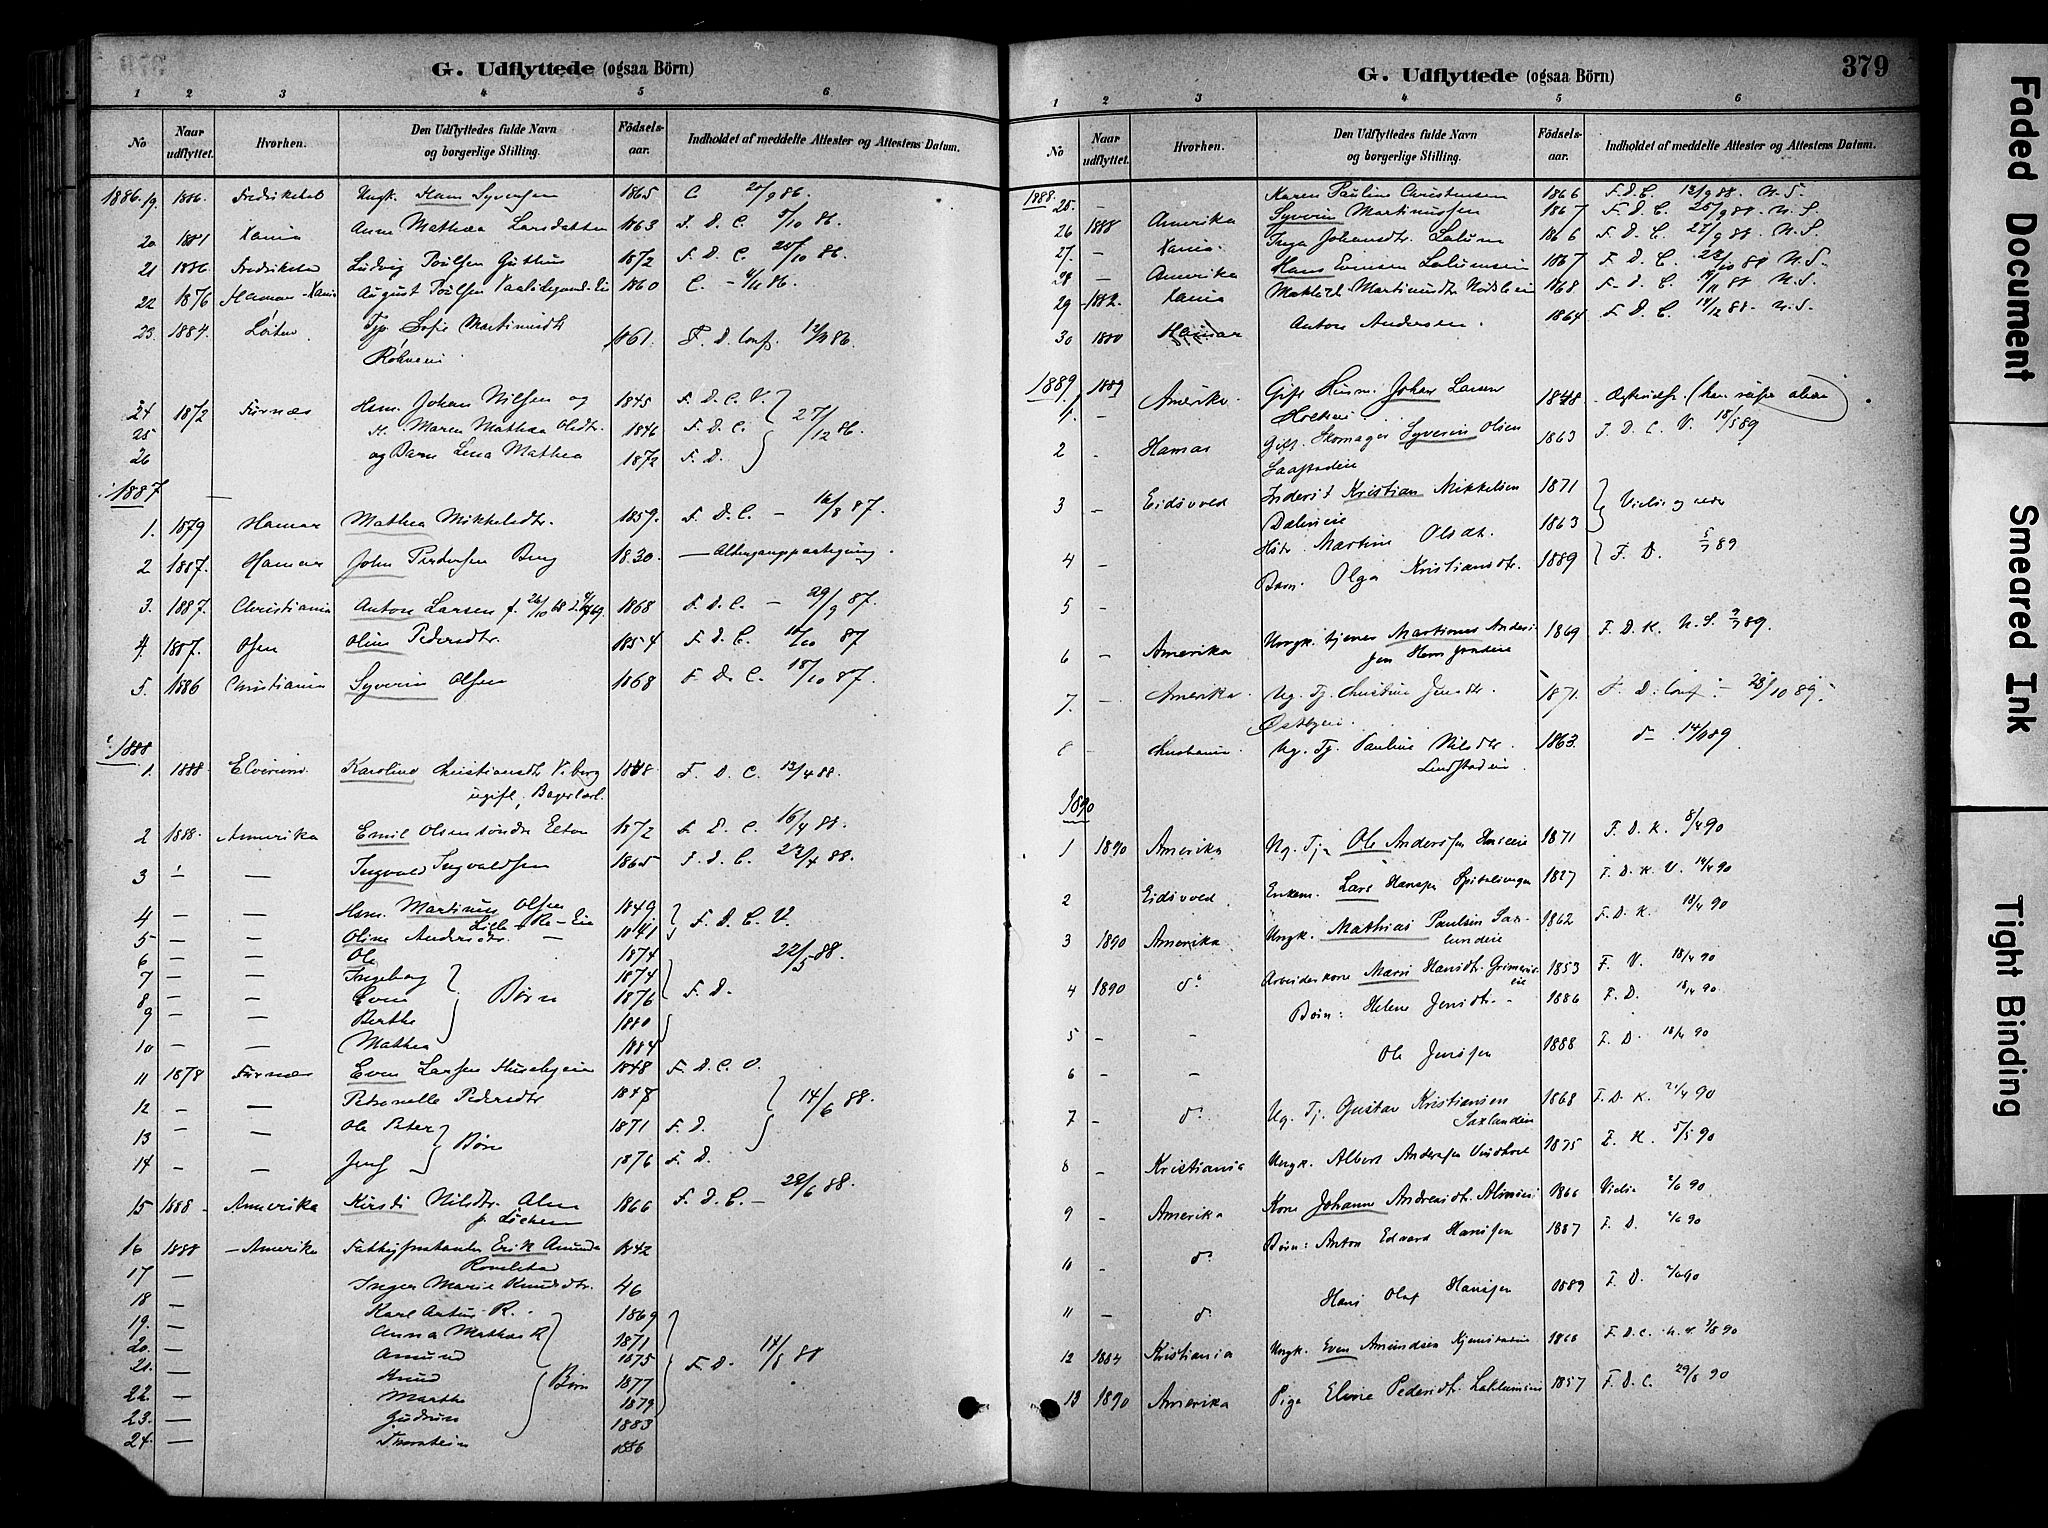 G. Udflyttede (ogsaa Börn)
1 2 3 4 5 6
No
Naar udflyttet.
Hvorhen.
Den Udflyttedes fulde Navn og borgerlige Stilling.
Födsels-aar.
Indholdet af meddelte Attester og Attestens Datum.
1886. 19. 1886. Fredrikstad Ungk. Hans Syversen 1865 C 20/9 86.
20 1881 Xania Anne Mathea Larsdatter 1863 F. D. C. 5/10 86.
21 1886 Fredrikstad Ludvig Poulsen Guthus 1872 F. D. C. 28/10 86.
22 1876 Hamar-Xania August Poulsen 1860 C. 86.
23. 1884. Løiten Tjp. Sofie Martinusdtr 1861. F. D. Conf. 86.
24 1872 Furnæs Hsm. Johan Nilsen og 1845 F. D. C. V.
25 H. Maren Mathea Olsdtr. 1846 F. D. C. 27/12 86.
26 og Barn Lena Mathea 1872 F. D.
1887
1. 1879 Hamar Mathea Mikkelsdtr. 1859. F. D. C. - 16/8 87.
2. 1887. Hamar John Pedersen Berg 1830 - Altergangsattegning.
3. 1887. Christiania Anton Larsen f. 26/10 68 1868 F. D. C. - 29/9 87.
4. 1887. Osen Oline Pedersdtr. 1854 F. D. C. 87
5. 1886 Christiania Syverin Olsen 1868 F. D. C. 18/10 87.
1888
1. 1888 Elverum. Karoline Christiansdtr Viberg 1848 F. D. C. 13/4 88.
ugift,
2 1888. Amerika Emil Olsen Elton 1872 F. D. C. 16/4 88.
3 - Ingvald Ingvaldsen 1865 F. D. C. 22/4 88.
4 - - Hsm. Martinus Olsen 1849. F. D. C. V.
5 - - Oline Andersdtr. - 1841
6 - - Ole 1874 22/5 88.
7 - - Ingeborg 1874
8 - - Even Børn 1876 F. D.
9 - - Berthe 1880
10 - - Mathea 1884
11 1878 Furnæs Even Larsen 1848 F. D. C. V.
12 - - Petronelle Pedersdtr 1847 14/6 88.
13 - - Ole Peter Børn 1871 F. D.
14 - - Jens 1876 F. D.
15 1888 - Amerika Kirsti Nilsdtr. Alm 1866 F. D. C. - 28/6 88.
16 1888 - Amerika Erik 1842
17 - Inger Marie Knudsdtr. 46
18 - Karl Artur R. 1869
19. - Anna Mathea R 1871
20. - Amund 1875 F. D. 14/8 88
21. - Knud Børn 1877
22. - Marthe 1879
23. - Gudrun 1883
24. - Thorstein 1886
G. Udflyttede (ogsaa Börn) 379
1 2 3 4 5 6
No
Naar udflyttet.
Hvorhen.
Den Udflyttedes fulde Navn og borgerlige Stilling.
Födsels-aar.
Indholdet af meddelte Attester og Attestens Datum.
1888.
25. - Karen Pauline Christensen 1866 F. D. C. 13/9 88. N. S.
26 1888 Amerika Syverin Martinussen 1867 F. D. C. 25/9 88. N. S.
27. - Xania. Inga Johansdtr. Lalum 1866 F. D. C. 27/9 88 N. S.
28 - Amerika Hans Evensen Lalumseie 1867 F. D. C. 22/10 88 N. S.
29 1882. Xania Mathilde Martinusdtr 1868 F. D. C. 88. N. S.
30 1880 Hamar Anton Andersen. 1864 F. D. C. 14/12 88. N. S.
1889
1. 1889 Amerika. Gift Husm. Johan Larsen 1848
2 - Hamar Gift. Skomager Syverin Olsen 1863 F. D. C. V. 18/5 89
3 - Eidsvold Inderst Kristian Mikkelsen 1871
Dæhlieie
4 - Martine Olsdt. 1863
Barn: Olga Kristiansdtr. 1889 F. D. 5/7 89
5 -
6 - Amerika Ungk. tjener Martinus 1869 F. D. K. N. S. 9/7 89.
7. - Amerika Ug. Tj. Christine Jensdtr. 1871. F. D. Conf. - 28/10 89
Østbyeie.
8 - Christiania. Ug. Tj. Pauline Nilsdtr. 1863. do 89
1890
1 1890 Amerika Ug. Tj. Ole Andersen 1871 F. D. K. 8/4 90
2 - Eidsvold Enkem. Lars Hansen 1827 F. D. K. V. 14/4 90
3 1890 Amerika Ungk. Mathias Paulsen Sax- 1862 F. D. K. 18/4 90
lundeie
4 1890 do Arbeiderkone Mari Hansdtr. 1853 F. V. 18/4 90
5 - - Børn: Helene Jensdtr. - 1886 F. D. 18/4 90
6 - - Ole Jensen 1888 F. D. 18/4 90
7 - do Ug. Tj. Gustav Kristiansen 1868 F. D. K. 21/4 90
Saxlundeie
8 - Kristiania Ungk. Albert Andersen 1875 F. K. 5/5 90
9 - Amerika Kone Johanne Andreasdtr. 1866 Vielse 2/6 90
10 - do Børn: Anton Edvard Hansen 1887 F. D. 2/6 90
11 - do Hans Olaf Hansen 1889 F. D. 2/6 90
12 1884 Kristiania Ungk. Even Amundsen 1866 F. D. C. N. S. 90
13 1890 Amerika Pige Eline Pedersdt. 1857 F. D. C. 29/8 90
Faded Document
Smeared Ink
Tight Binding